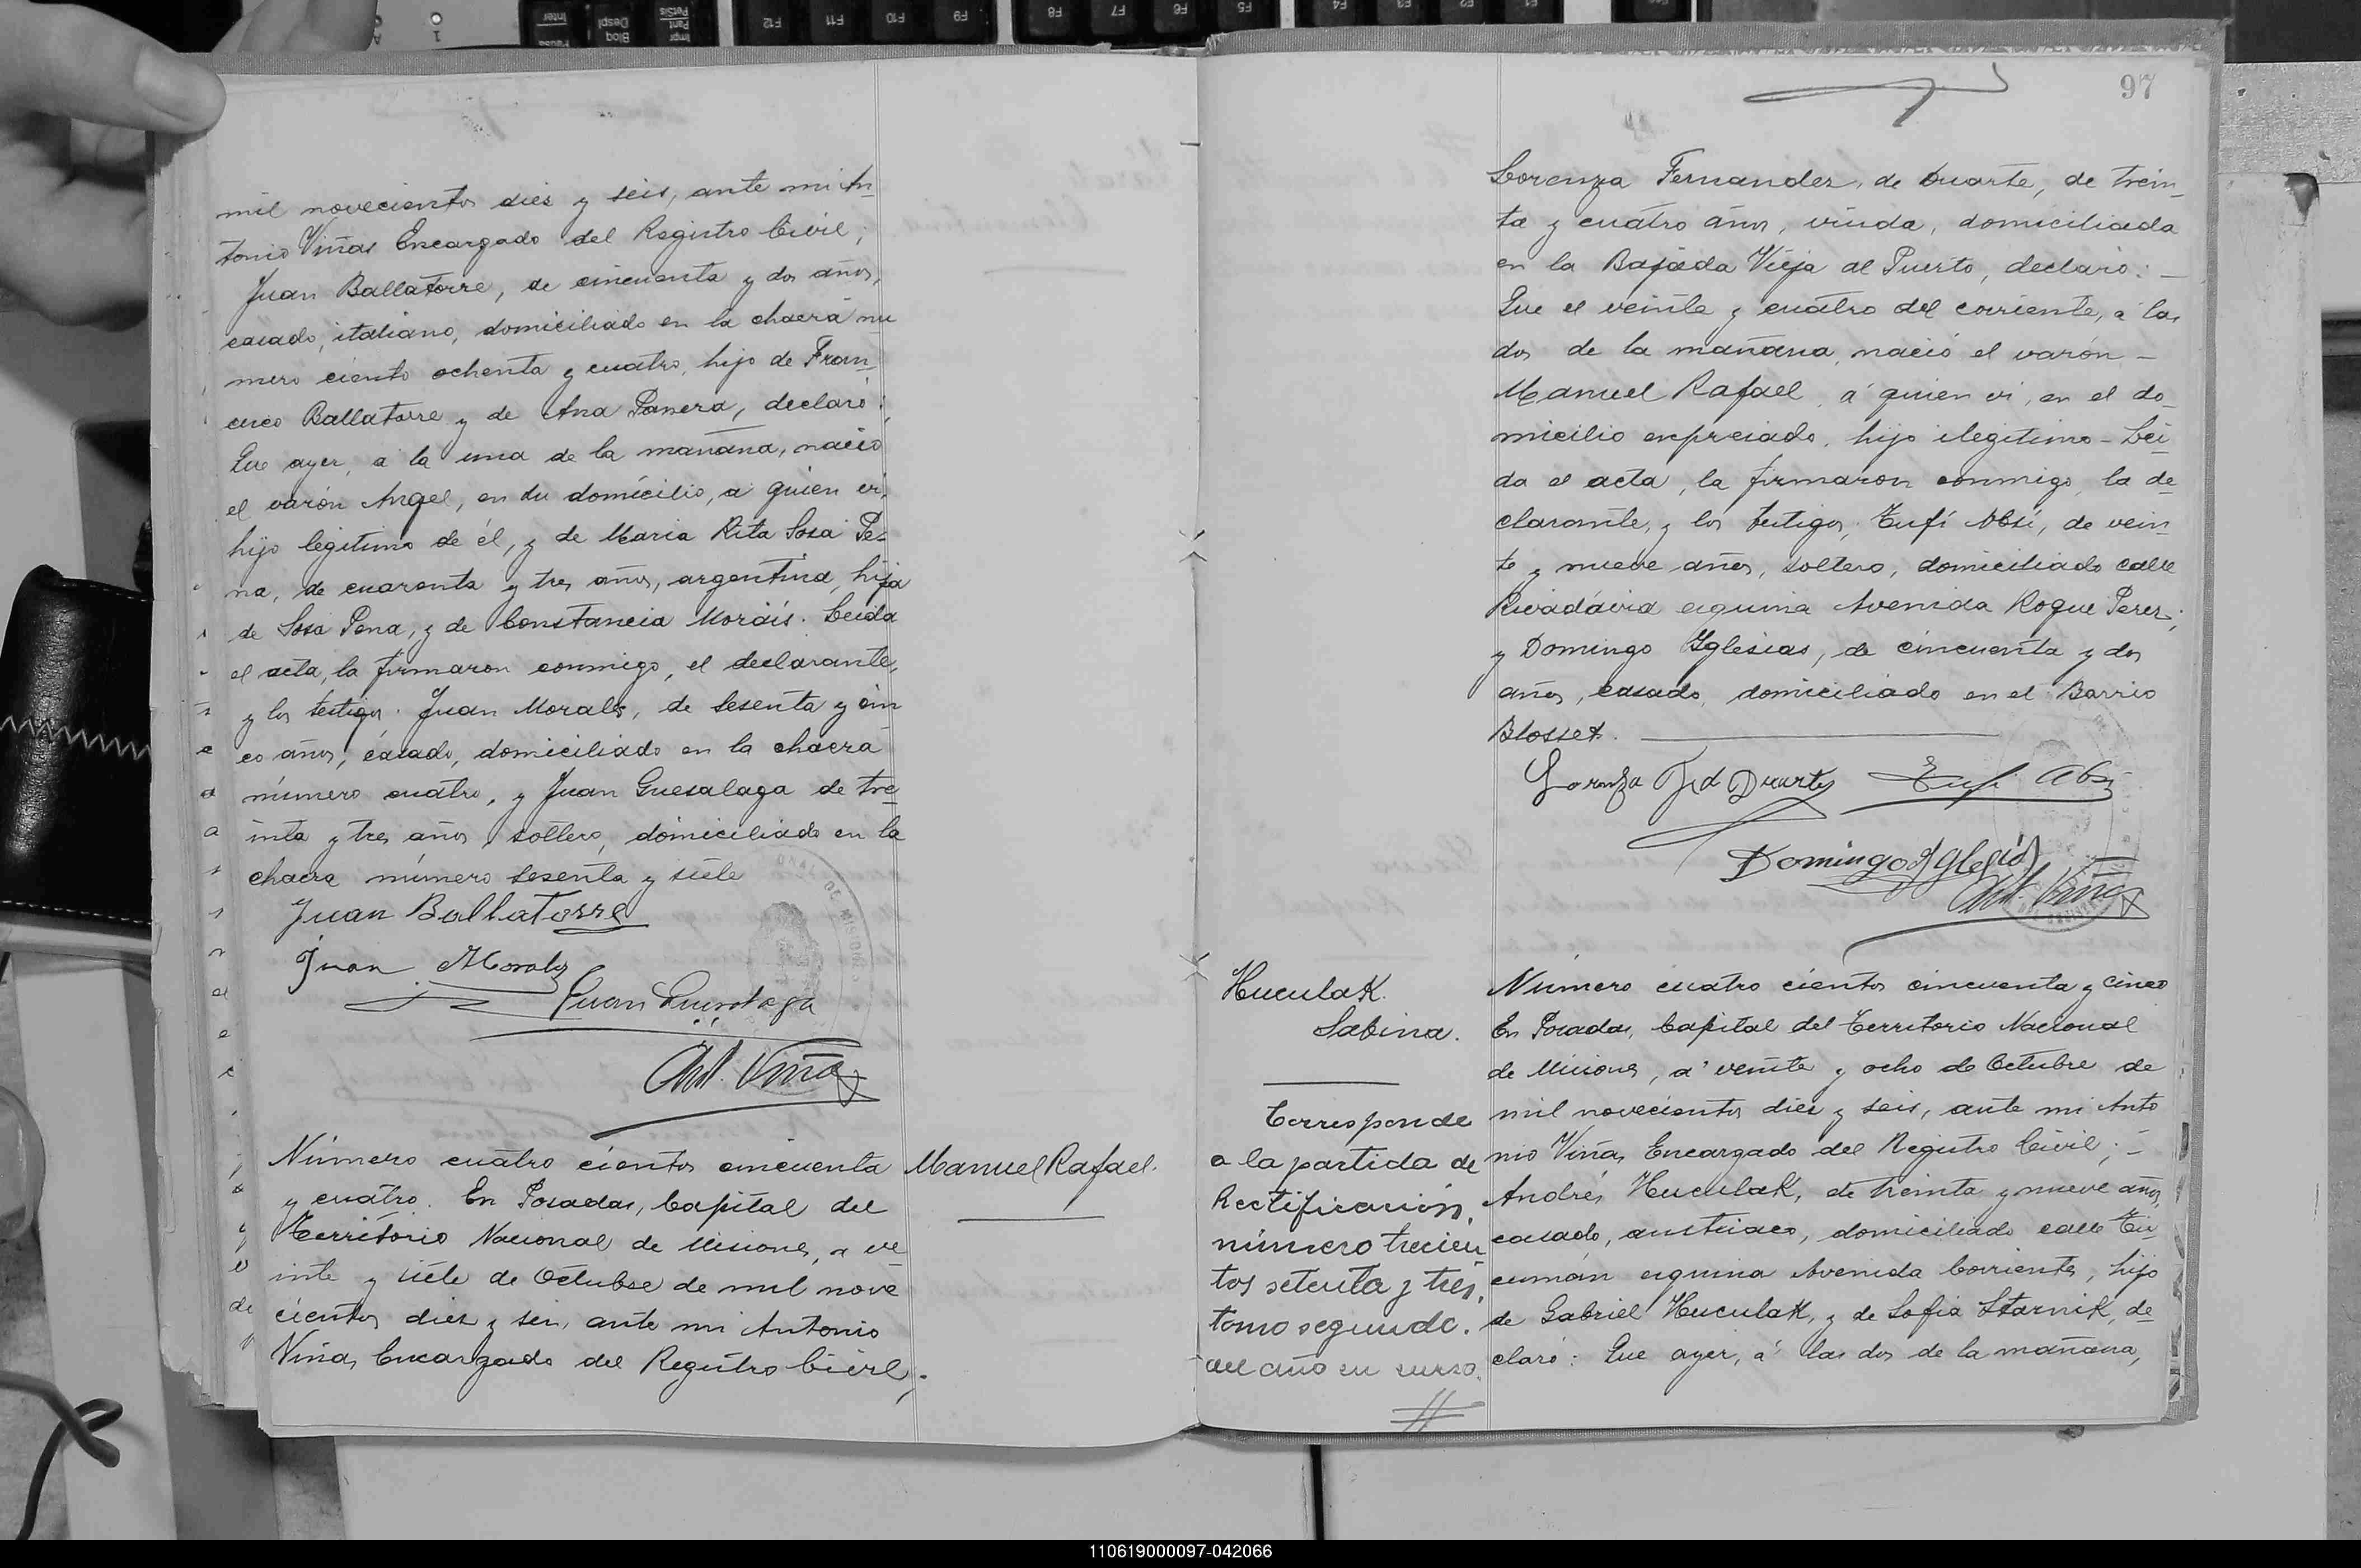 mil novecientos diez y seis, ante mi An
tonio Viñas Encargado del Registro Civil;
Juan Ballatorre, de cincuenta y dos años,
casado, italiano, domiciliado en la chacra nu
mero ciento ochenta y cuatro, hijo de Fran
cisco Ballatorre y de Ana Panera, declaró:
Que ayer, a la una de la mañana, nació
el varón Angel, en su domicilio, a quien vi,
hijo legitimo de él, y de Maria Rita Sosa Pe-
na, de cuarenta y tres años, argentina, hija
de Sosa Pena, y de Constancia Morais. Leida
el acta, la firmaron conmigo, el declarante,
y los testigos. Juan Morales, de sesenta y cin
co años, casado, domiciliado en la chacra
número cuatro, y Juan Guesalaga de tre
inta y tres años, soltero, domiciliado en la
chacra número sesenta y siete
Juan Ballatorre
Juan Morales
Juan Guesalaga
Ant. Viñas
Número cuatro cientos cincuenta
y cuatro. En Posadas, Capital del
Territorio Nacional de Misiones, a ve
inte y siete de Octubre de mil nove
cientos diez y seis, ante mi Antonio
Viñas Encargado del Registro Civil;
Manuel Rafael.
97
Lorenza Fernandez, de Duarte, de trein
ta y cuatro años, viuda, domiciliada
en la Bajada Vieja al Puerto, declaró: -
Que el veinte y cuatro del corriente, a las
dos de la mañana, nació el varón -
Manuel Rafael, á quien vi, en el do
micilio expresado, hijo ilegitimo - Lei
da el acta, la firmaron conmigo, la de
clarante, y los testigos, Tufí Absi, de vein
te y nueve años, soltero, domiciliado calle
Rivadavia esquina Avenida Roque Perez;
y Domingo Yglesias, de cincuenta y dos
años, casado, domiciliado en el Barrio
Blosset.
Lorenza F. d Duarte Tufi Absi
Domingo Yglesias
Ant. Viñas
Huculak.
Sabina.
Corresponde
a la partida de
Rectificación,
número trecien
tos setenta y tres,
tomo segundo.
del año en curso.
Número cuatro cientos cincuenta y cinco
En Posadas, Capital del Territorio Nacional
de Misiones, a veinte y ocho de Octubre de
mil novecientos diez y seis, ante mi Anto
nio Viñas Encargado del Registro Civil; -
Andrés Huculak, de treinta y nueve años,
casado, austriaco, domiciliado calle Tu
cumán esquina Avenida Corrientes, hijo
de Gabriel Huculak, y de Sofia Starnik, de
claró: Que ayer, á las dos de la mañana,
110619000097-042066